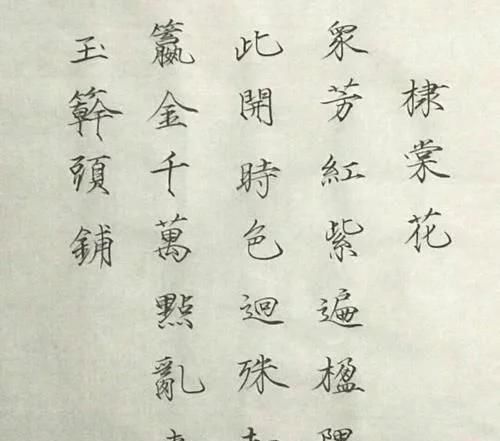 棣棠花
眾芳紅紫遍楹隅
此開時色迴殊
籝金千萬點亂
玉簳頭鋪